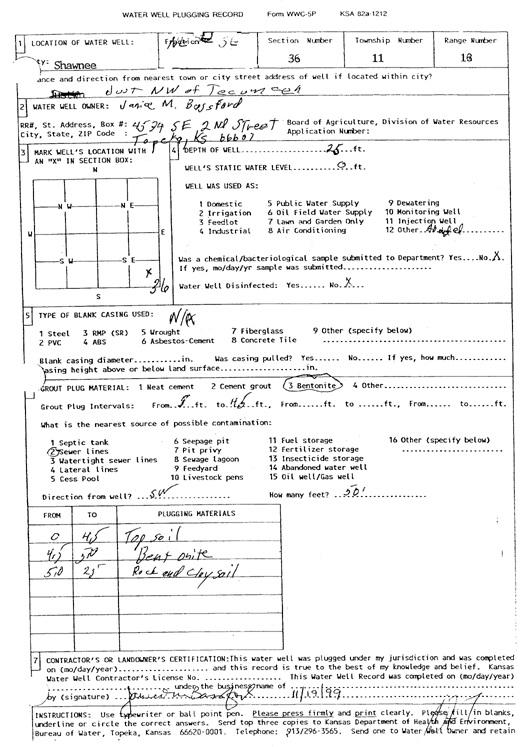 WATER WELL PLUGGING RECORD Form WWC-5P KSA 82a-1212
1 LOCATION OF WATER WELL: Fraction SE Section Number Township Number Range Number
ty: Shawnee 36 11 18
ance and direction from nearest town or city street address of well if located within city?
Just NW of Tecumseh
2 WATER WELL OWNER: Janice M. Bassford
RR#, St. Address, Box #: 4534 SE 2nd Street Board of Agriculture, Division of Water Resources
City, State, ZIP Code : Topeka, KS 66607 Application Number:
3 MARK WELL'S LOCATION WITH AN "X" IN SECTION BOX:
N
N W N E
W E
S W S E
X
36
S
4 DEPTH OF WELL....................25..ft.
WELL'S STATIC WATER LEVEL..........0....ft.
WELL WAS USED AS:
1 Domestic 5 Public Water Supply 9 Dewatering
2 Irrigation 6 Oil Field Water Supply 10 Monitoring Well
3 Feedlot 7 Lawn and Garden Only 11 Injection Well
4 Industrial 8 Air Conditioning 12 Other
Was a chemical/bacteriological sample submitted to Department? Yes....No.X.
If yes, mo/day/yr sample was submitted...................
Water Well Disinfected: Yes...... No.X...
5 TYPE OF BLANK CASING USED: N/A
1 Steel 3 RMP (SR) 5 Wrought 7 Fiberglass 9 Other (specify below)
2 PVC 4 ABS 6 Asbestos-Cement 8 Concrete Tile ..............................
Blank casing diameter...........in. Was casing pulled? Yes...... No...... If yes, how much..........
asing height above or below land surface....................in.
GROUT PLUG MATERIAL: 1 Neat cement 2 Cement grout 3 Bentonite 4 Other...................
Grout Plug Intervals: From......ft. to 4.5..ft., From......ft. to ......ft., From...... to......ft.
What is the nearest source of possible contamination:
1 Septic tank 6 Seepage pit 11 Fuel storage 16 Other (specify below)
2 Sewer lines 7 Pit privy 12 Fertilizer storage ....................
3 Watertight sewer lines 8 Sewage lagoon 13 Insecticide storage
4 Lateral lines 9 Feedyard 14 Abandoned water well
5 Cess Pool 10 Livestock pens 15 Oil well/Gas well
Direction from well? ..SW............... How many feet? ..50'............
FROM TO PLUGGING MATERIALS
0 4.5 Top soil
4.5 5.0 Bentonite
5.0 25 Rock and Clay soil
7 CONTRACTOR'S OR LANDOWNER'S CERTIFICATION: This water well was plugged under my jurisdiction and was completed
on (mo/day/year)................... and this record is true to the best of my knowledge and belief. Kansas
Water Well Contractor's License No. ................ This Water Well Record was completed on (mo/day/year)
.................. under the business name of 11/19/99
by (signature) Janice M. Bassford
INSTRUCTIONS: Use typewriter or ball point pen. Please press firmly and print clearly. Please fill/in blanks,
underline or circle the correct answers. Send top three copies to Kansas Department of Health and Environment,
Bureau of Water, Topeka, Kansas 66620-0001. Telephone: 913/296-3565. Send one to Water Well Owner and retain